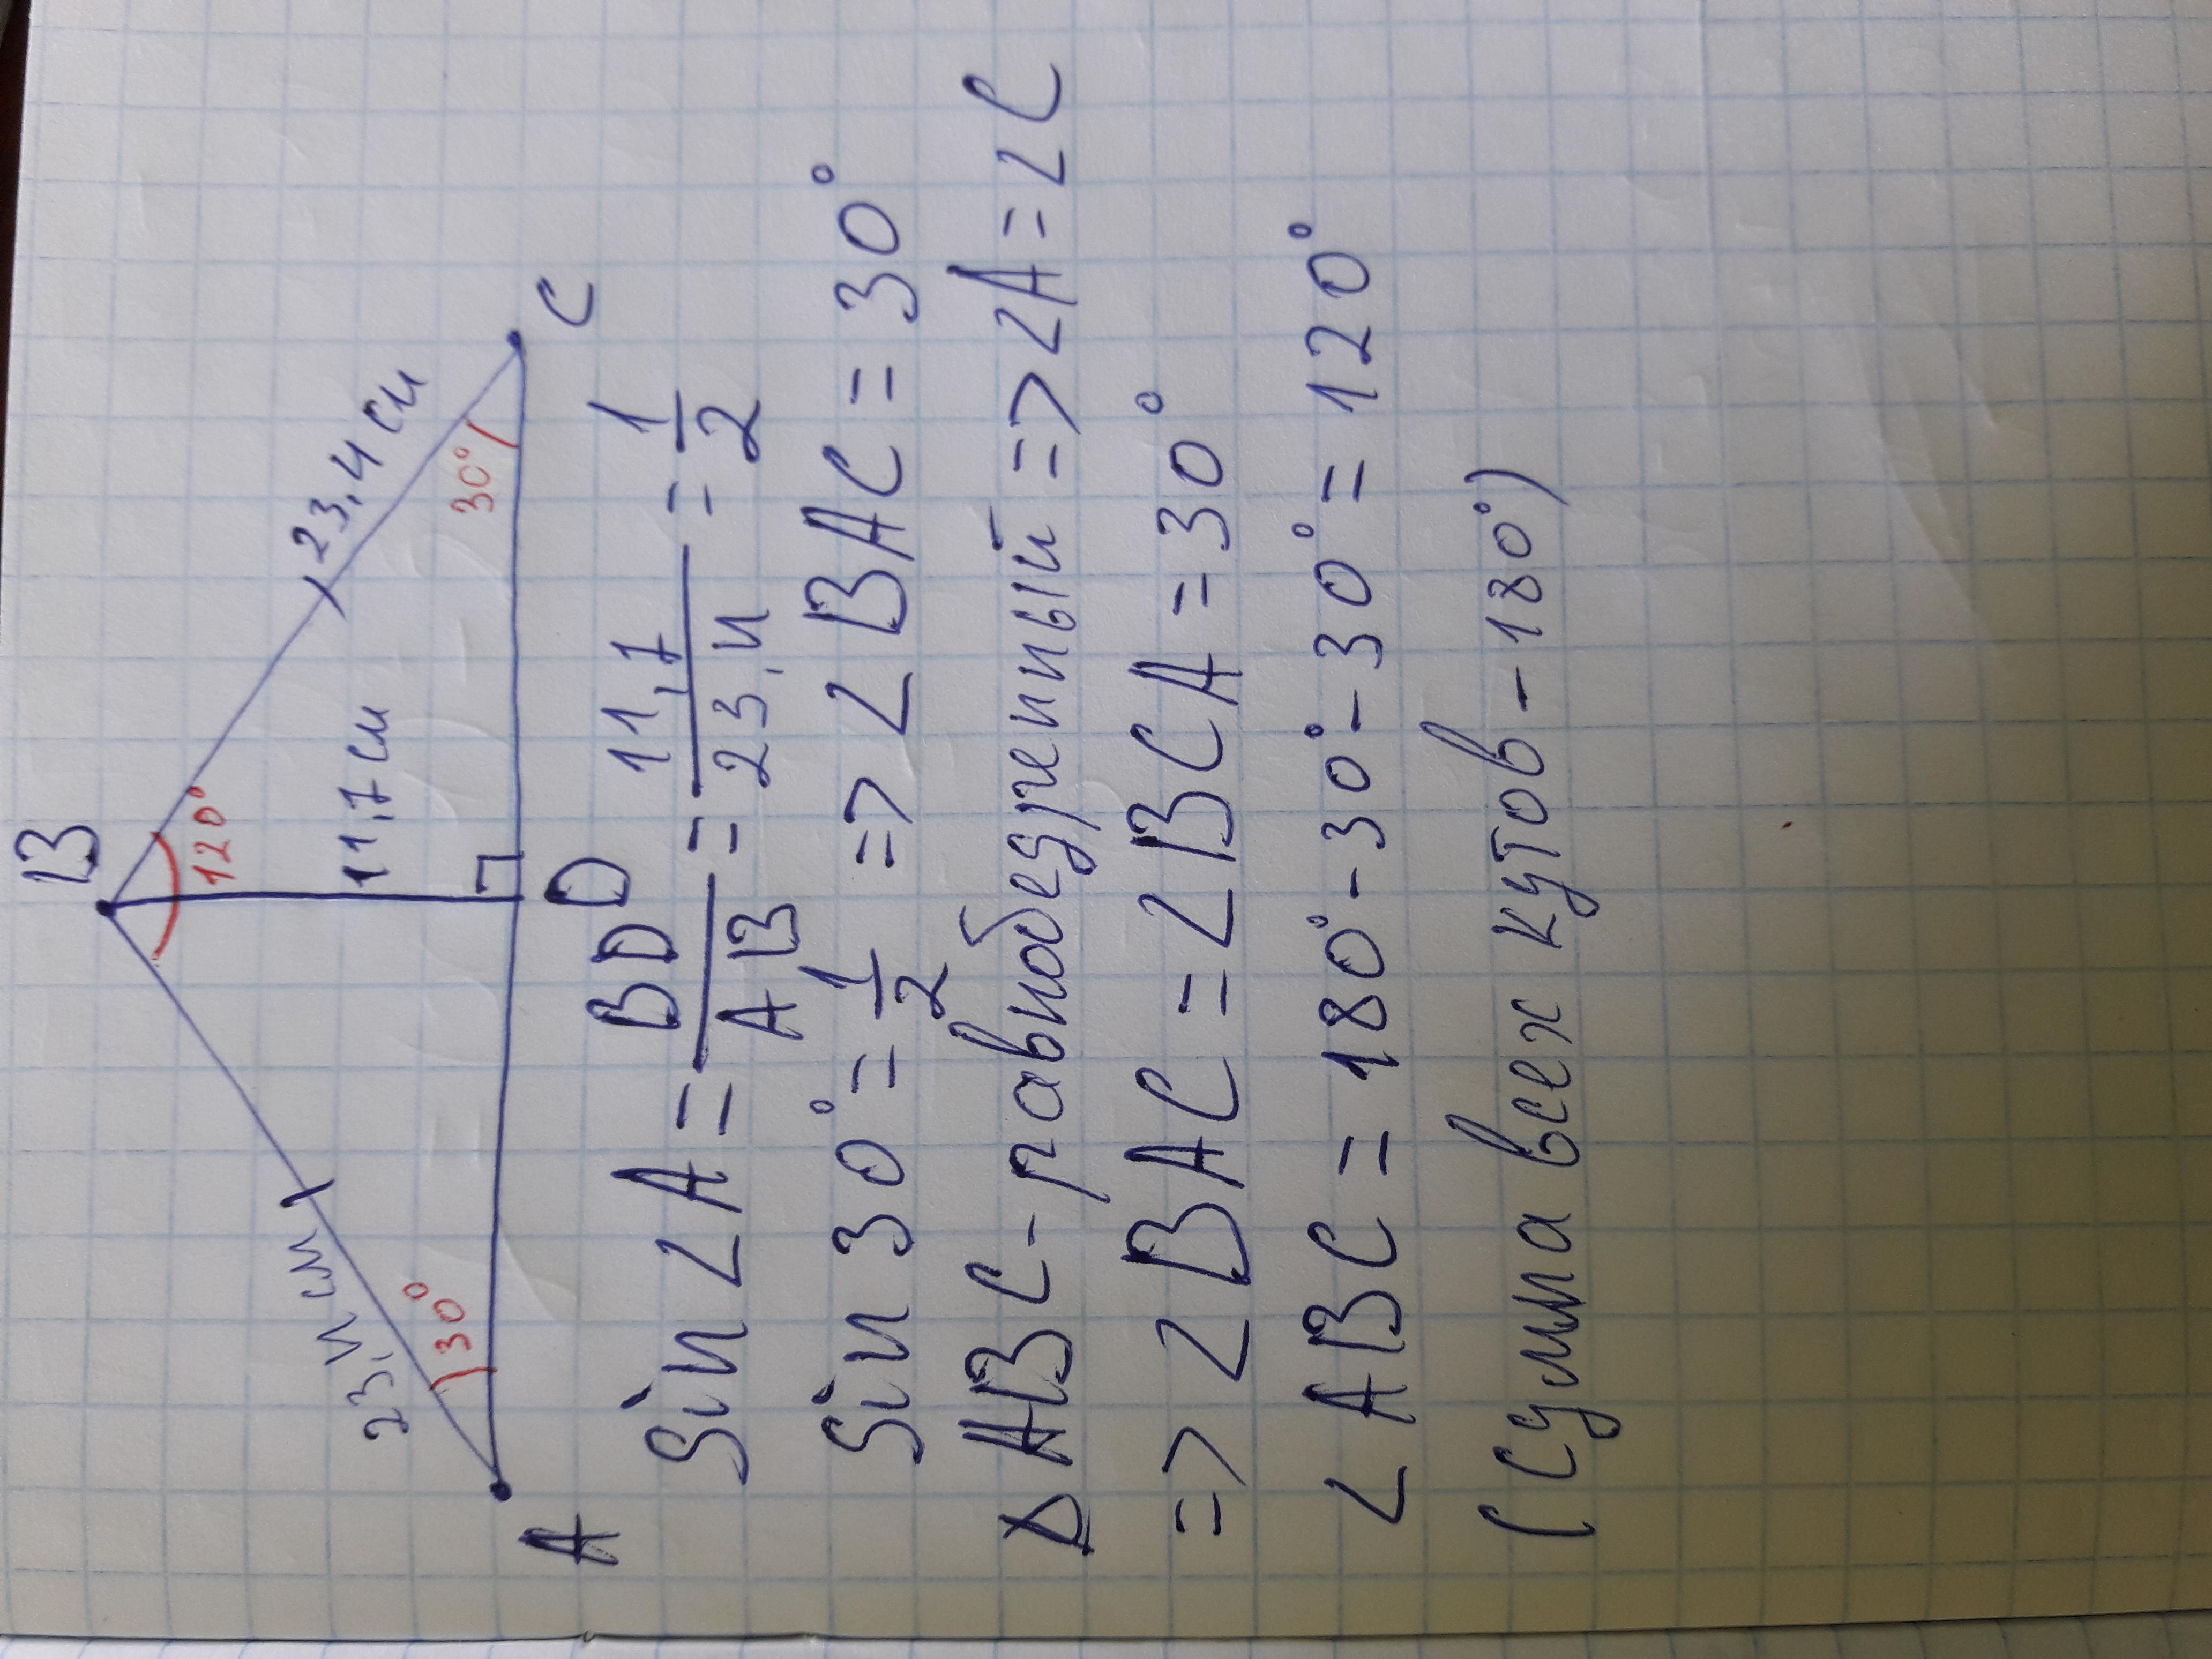 B
23,4 см
120°
11,7 см
23,4 см
30°
30°
A
D
C
Sin ∠A = BD/AB = 11,7/23,4 = 1/2
Sin 30° = 1/2 => ∠BAC = 30°
∆ABC - равнобедренный => ∠A = ∠C
=> ∠BAC = ∠BCA = 30°
∠ABC = 180° - 30° - 30° = 120°
(Сумма всех кутов - 180°)